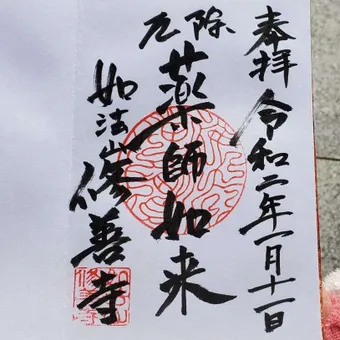 奉拝
令和二年一月十一日
厄除
薬師如来
如法山
修善寺